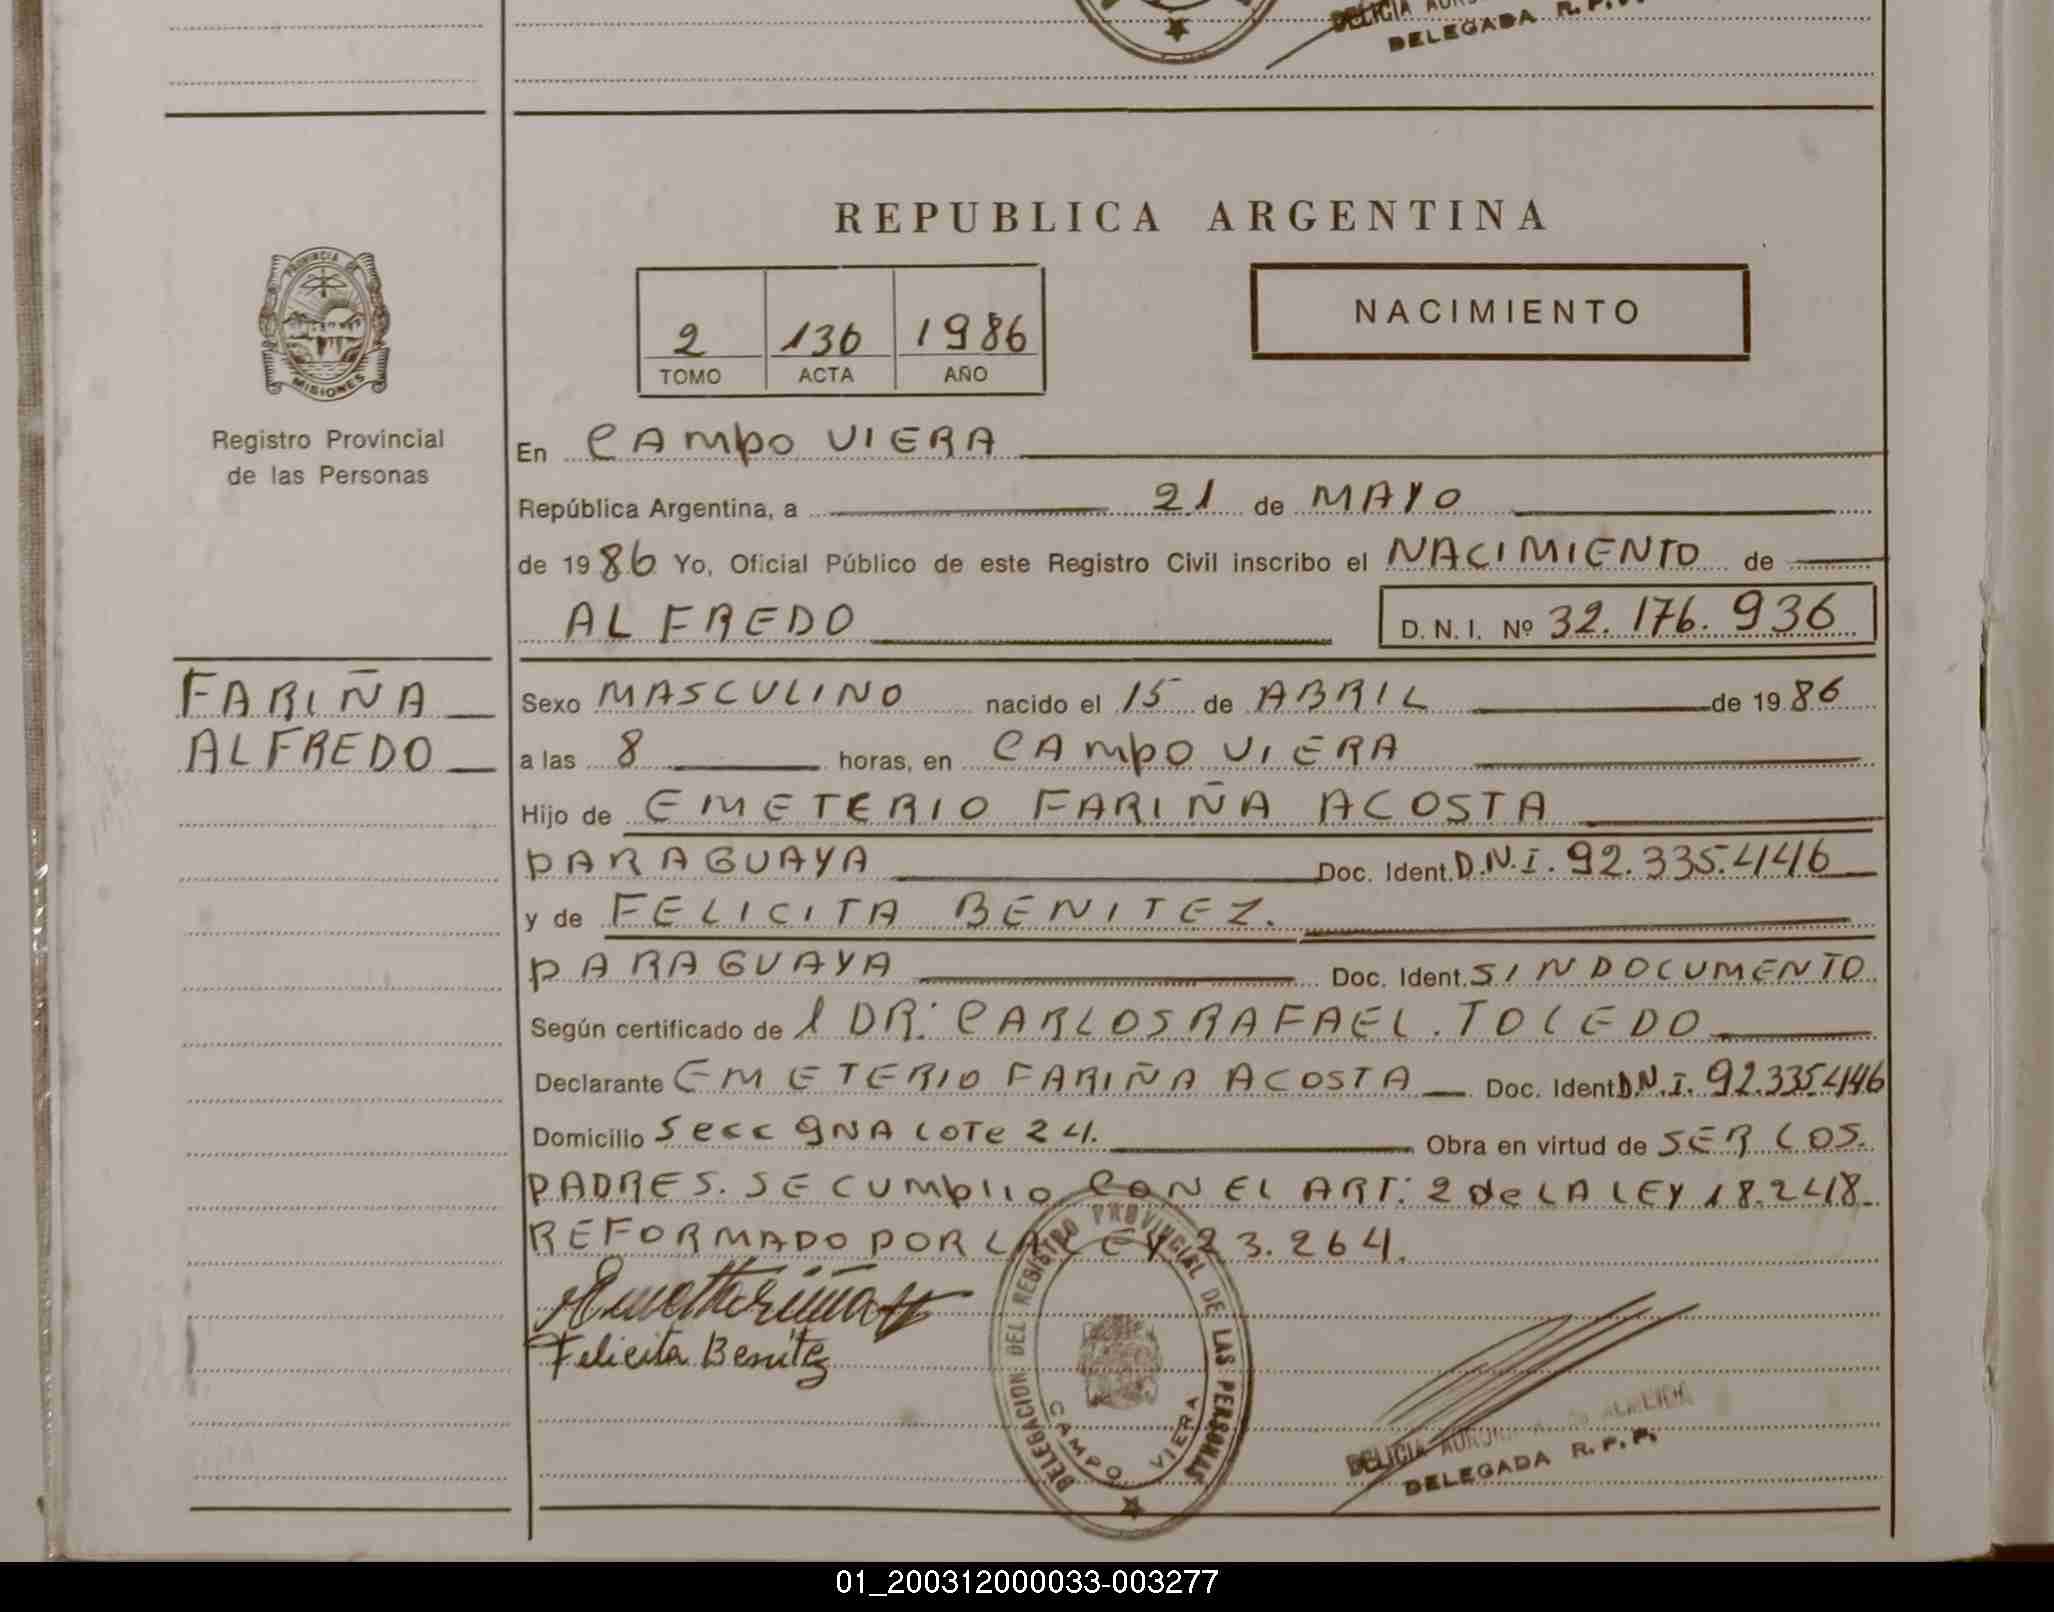 DELICIA
DELEGADA R.P.
REPUBLICA ARGENTINA
PROVINCIA DE
MISIONES
2 136 1986
TOMO ACTA AÑO
NACIMIENTO
Registro Provincial
de las Personas
En CAMPO VIERA
República Argentina, a 21 de MAYO
de 1986 Yo, Oficial Público de este Registro Civil inscribo el NACIMIENTO de
ALFREDO D.N.I. Nº 32.176.936
FARIÑA
ALFREDO
Sexo MASCULINO nacido el 15 de ABRIL de 1986
a las 8 horas, en CAMPO VIERA
Hijo de EMETERIO FARIÑA ACOSTA
PARAGUAYA Doc. Ident. D.N.I. 92.335.446
y de FELICITA BENITEZ.
PARAGUAYA Doc. Ident. SIN DOCUMENTO
Según certificado de l DR: CARLOS RAFAEL. TOLEDO
Declarante EMETERIO FARIÑA ACOSTA Doc. Ident. D.N.I. 92.335.446
Domicilio Secc 9NA LOTe 24. Obra en virtud de SER LOS
PADRES. SE CUMPLIO CON EL ART: 2 de LA LEY 18.248
REFORMADO POR LA LEY 23.264.
Felicita Benitez
DELEGACION DEL REGISTRO PROVINCIAL DE LAS PERSONAS
CAMPO VIERA
DELICIA AURORA A. de ALMEIDA
DELEGADA R.P.P.
01_200312000033-003277